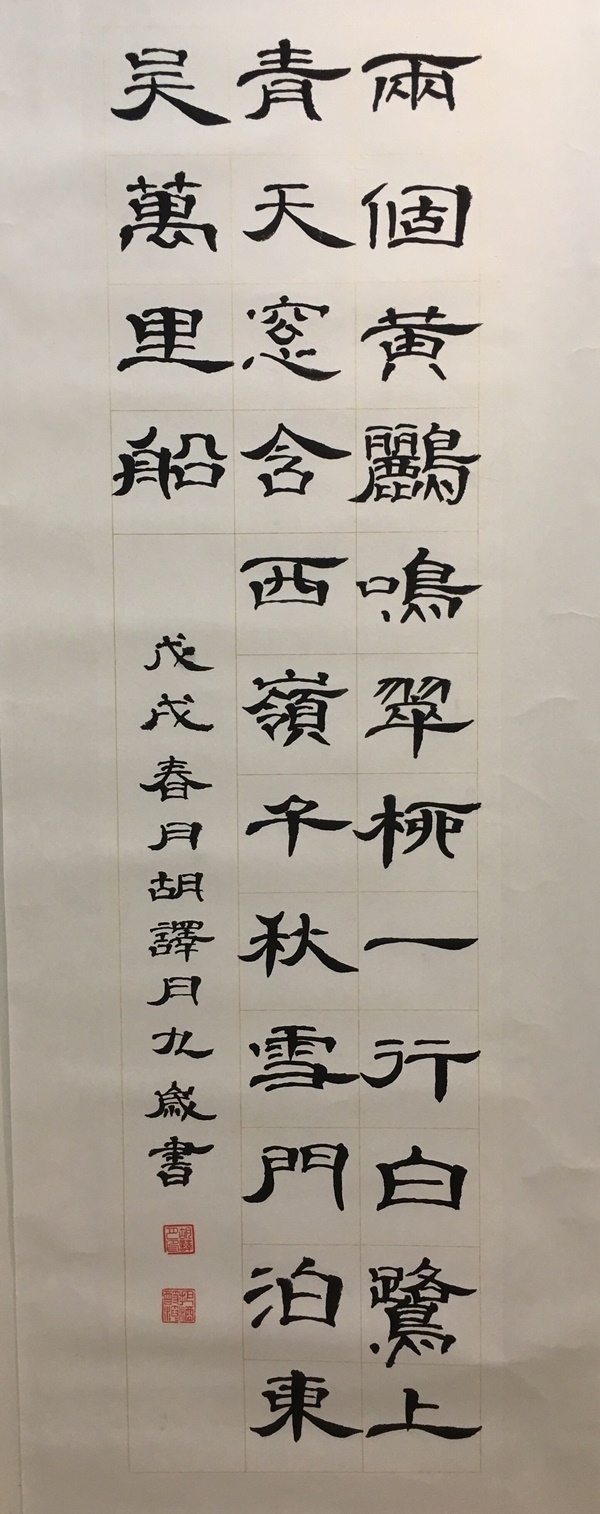 兩個黃鸝鳴翠柳一行白鷺上
青天窓含西嶺千秋雪門泊東
吴萬里船
戊戌春月胡譯月九歲書